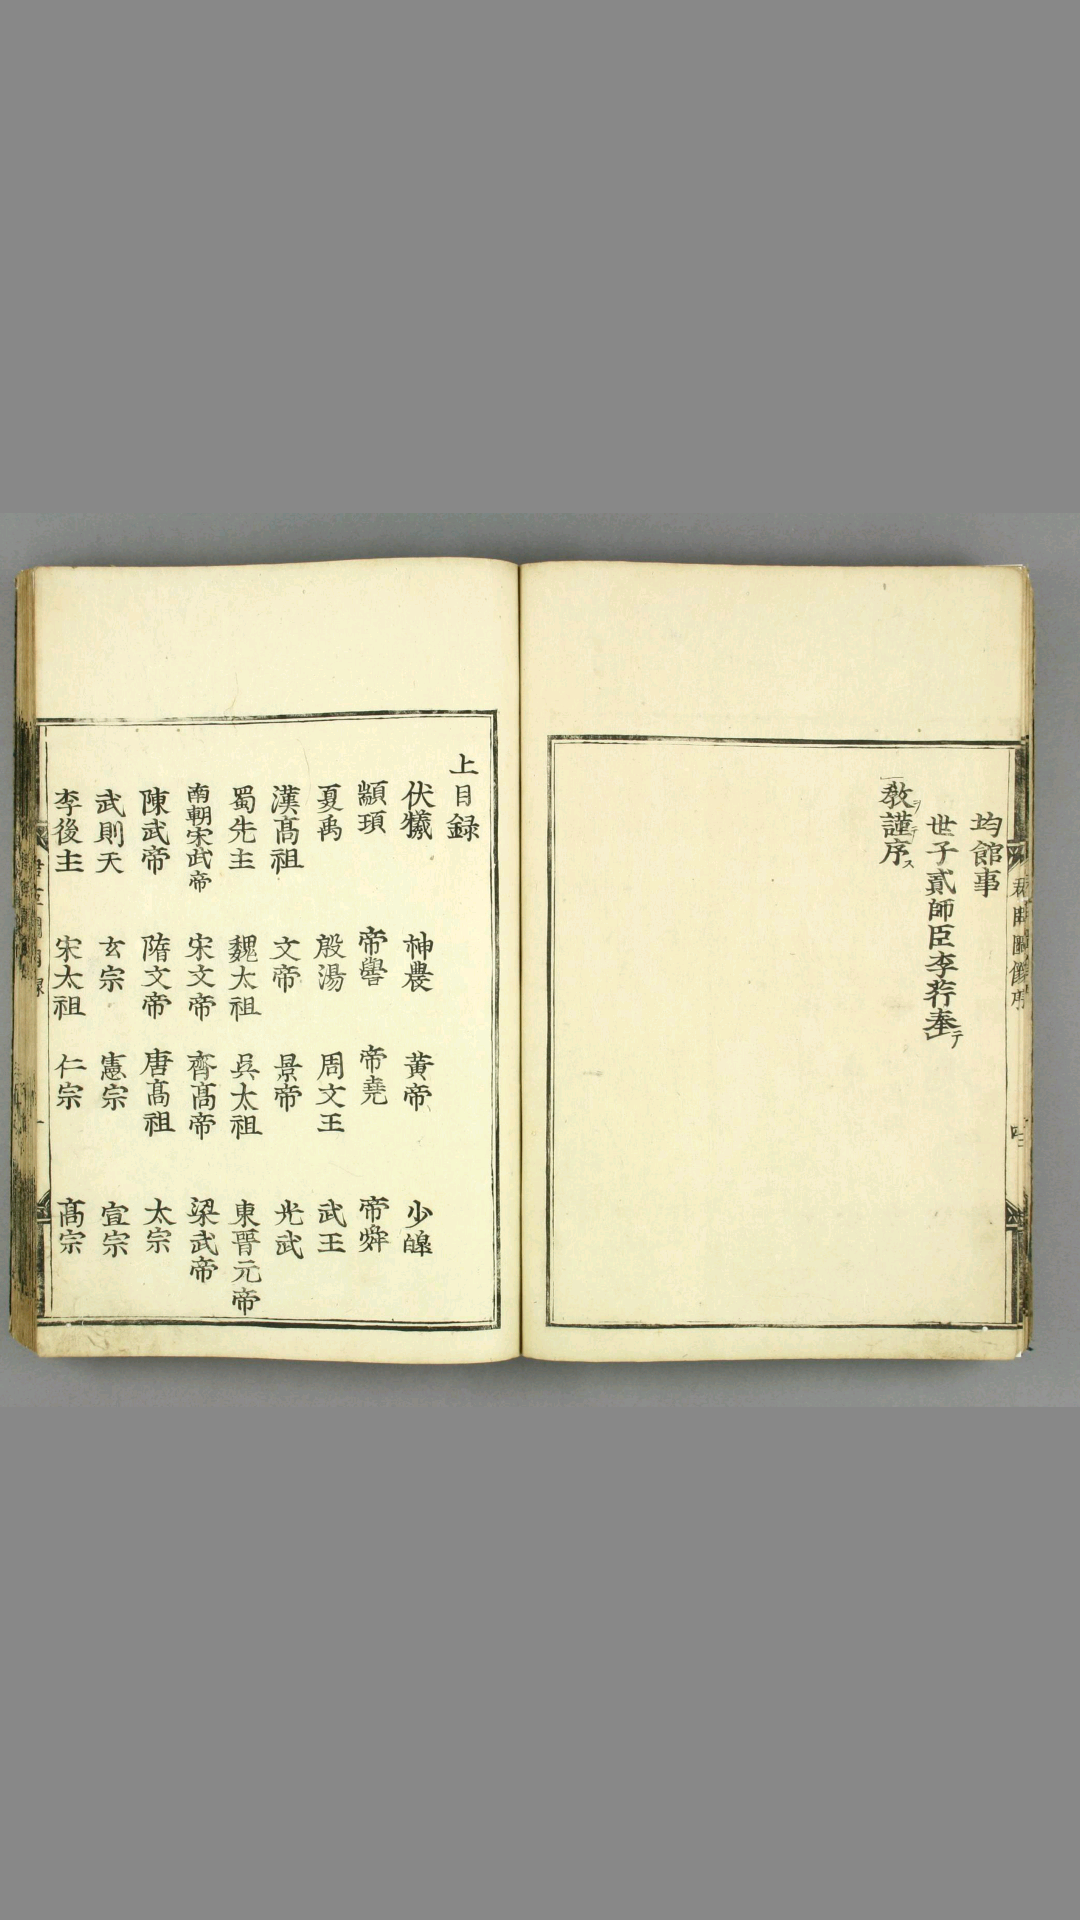 均館事
世子貳師臣李荇奉テ
教ヲ謹テ序ス
上目録
伏犧 神農 黃帝 少皥
顓頊 帝嚳 帝堯 帝舜
夏禹 殷湯 周文王 武王
漢髙祖 文帝 景帝 光武
蜀先主 魏太祖 吳太祖 東晉元帝
南朝宋武帝 宋文帝 齊髙帝 梁武帝
陳武帝 隋文帝 唐髙祖 太宗
武則天 玄宗 憲宗 宣宗
李後主 宋太祖 仁宗 髙宗